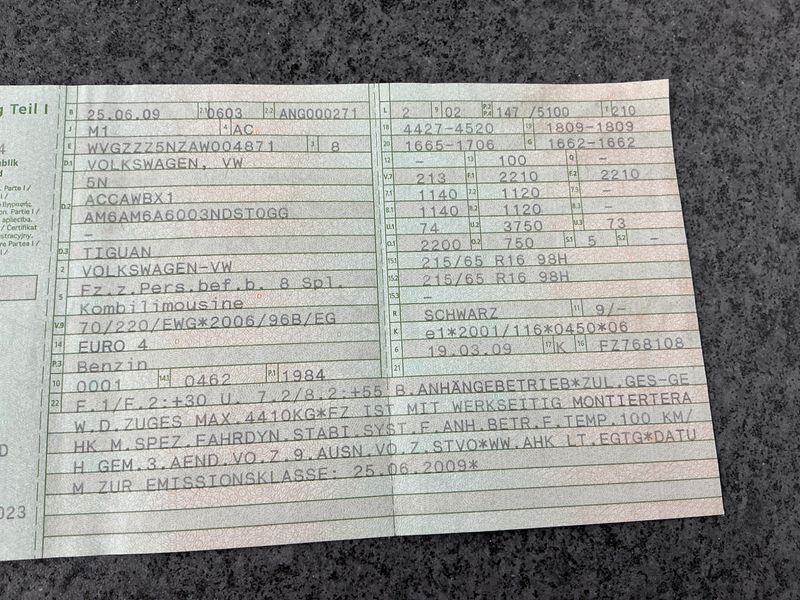 g Teil I
4
ublik
d
. Parte I /
I /
Εγγραφής.
on. Partie I /
apliecība.
/ Certifikat
estracyjny.
re Partea I /
I /
D
023
B 25.06.09 2.1 0603 2.2 ANG000271
J M1 4 AC
E WVGZZZ5NZAW004871 3 8
D.1 VOLKSWAGEN, VW
5N
D.2 ACCAWBX1
AM6AM6A6003NDST0GG
–
D.3 TIGUAN
2 VOLKSWAGEN-VW
5 Fz.z.Pers.bef.b. 8 Spl.
Kombilimousine
V.9 70/220/EWG*2006/96B/EG
14 EURO 4
P.3 Benzin
10 0001 14.1 0462 P.1 1984
L 2 9 02 P.2 P.4 147 /5100 T 210
18 4427-4520 19 1809-1809
20 1665-1706 G 1662-1662
12 – 13 100 Q –
V.7 213 F.1 2210 F.2 2210
7.1 1140 7.2 1120 7.3 –
8.1 1140 8.2 1120 8.3 –
U.1 74 U.2 3750 U.3 73
O.1 2200 O.2 750 S.1 5 S.2 –
15.1 215/65 R16 98H
15.2 215/65 R16 98H
15.3 –
R SCHWARZ 11 9/–
K e1*2001/116*0450*06
6 19.03.09 17 K 16 FZ768108
21
22 F.1/F.2:+30 U. 7.2/8.2:+55 B.ANHÄNGEBETRIEB*ZUL.GES-GE
W.D.ZUGES MAX.4410KG*FZ IST MIT WERKSEITIG MONTIERTERA
HK M.SPEZ.FAHRDYN.STABI.SYST.F.ANH.BETR.F.TEMP.100 KM/
H GEM.3.AEND.VO.7.9.AUSN.VO.7.STVO*WW.AHK LT.EGTG*DATU
M ZUR EMISSIONSKLASSE: 25.06.2009*